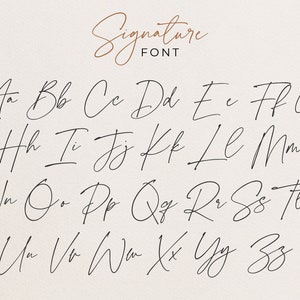 Signature
FONT
Aa Bb Cc Dd Ee Ff G
Hh Ii Jj Kk Ll Mm
Nn Oo Pp Qq Rr Ss Tt
Uu Vv Ww Xx Yy Zz